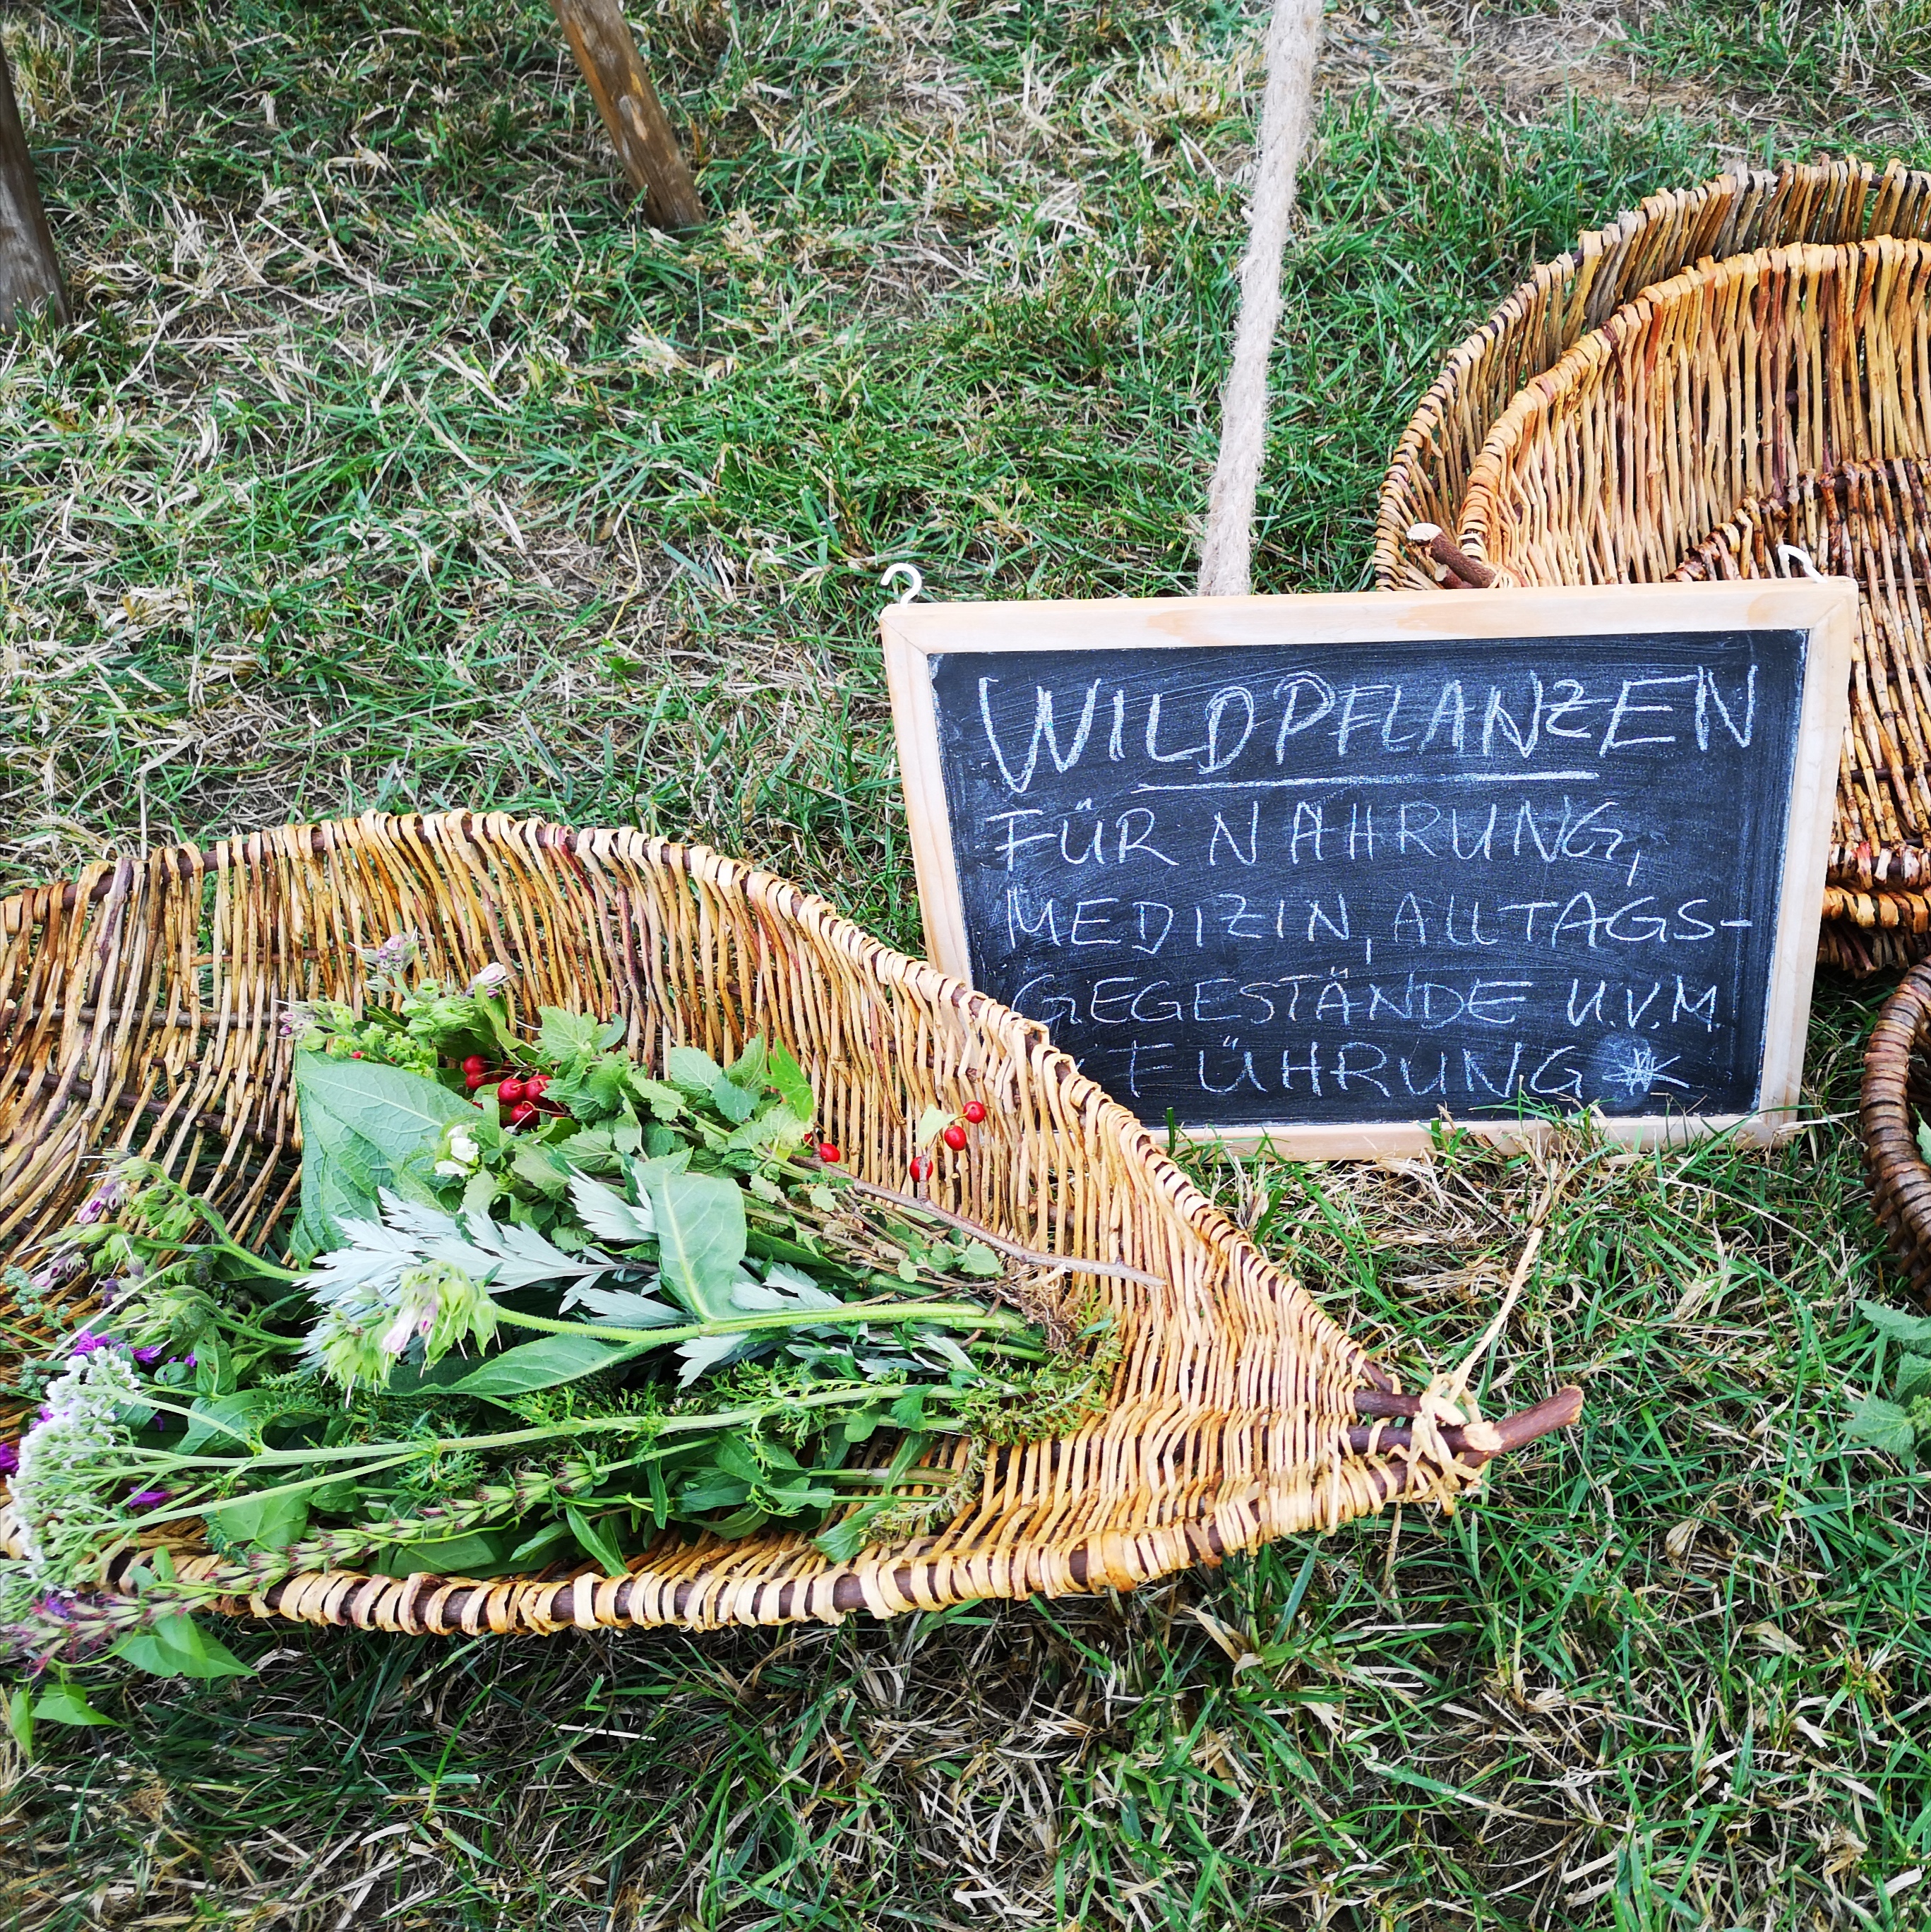 WILDPFLANZEN
FÜR NAHRUNG,
MEDIZIN, ALLTAGS-
GEGESTÄNDE U.V.M.
FÜHRUNG